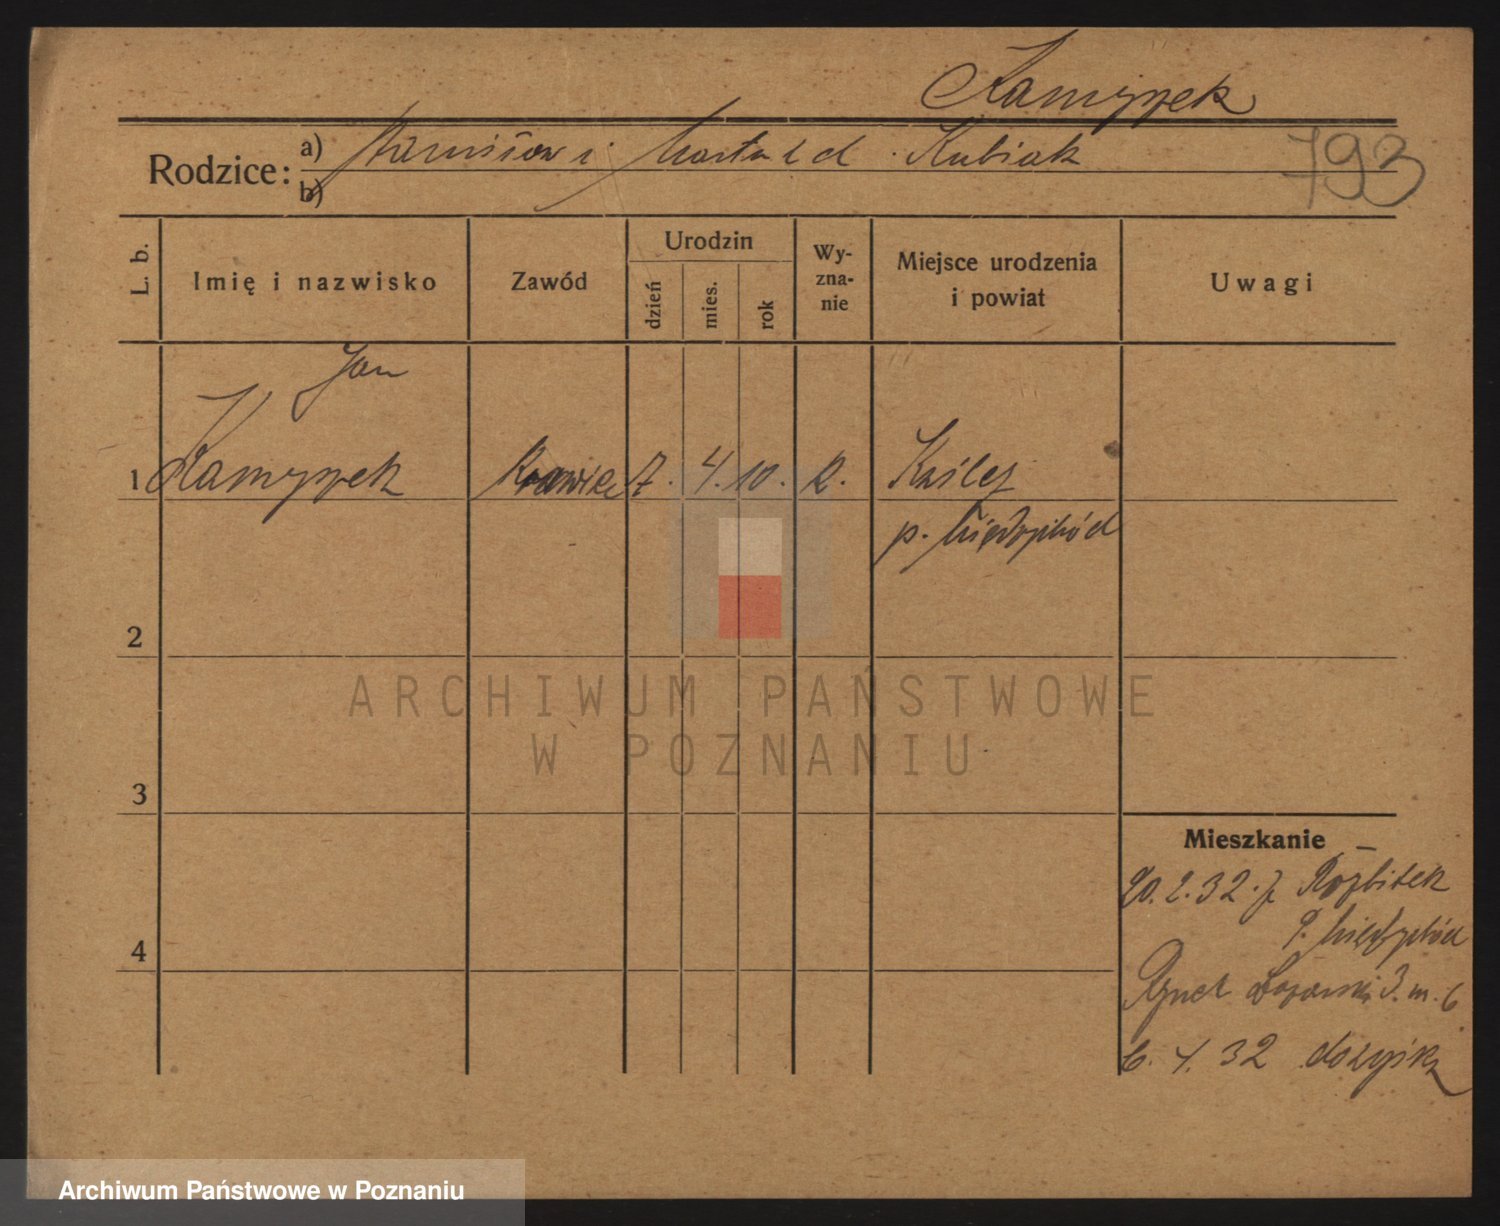 Kamyszek
Rodzice:
a) Stanisław i Marta z d. Kubiak
b)
793
L. b.
Imię i nazwisko
Zawód
Urodzin
dzień
mies.
rok
Wy-
zna-
nie
Miejsce urodzenia
i powiat
Uwagi
Jan
1 Kamyszek krawiec 7. 4. 10. R. Kaślej
p. Międzychód
2
3
4
Mieszkanie
20.2.32. z Rozbitek
p. Międzychód
Rynek Łazarski 3. m. 6
6. 4. 32
ARCHIWUM PAŃSTWOWE
W POZNANIU
Archiwum Państwowe w Poznaniu